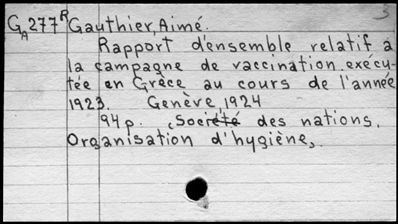 3
G_A 277^R Gauthier, Aimé.
Rapport d'ensemble relatif à
la campagne de vaccination exécu-
tée en Grèce au cours de l'année
1923. Genève, 1924
94 p. (Société des nations.
Organisation d'hygiène).